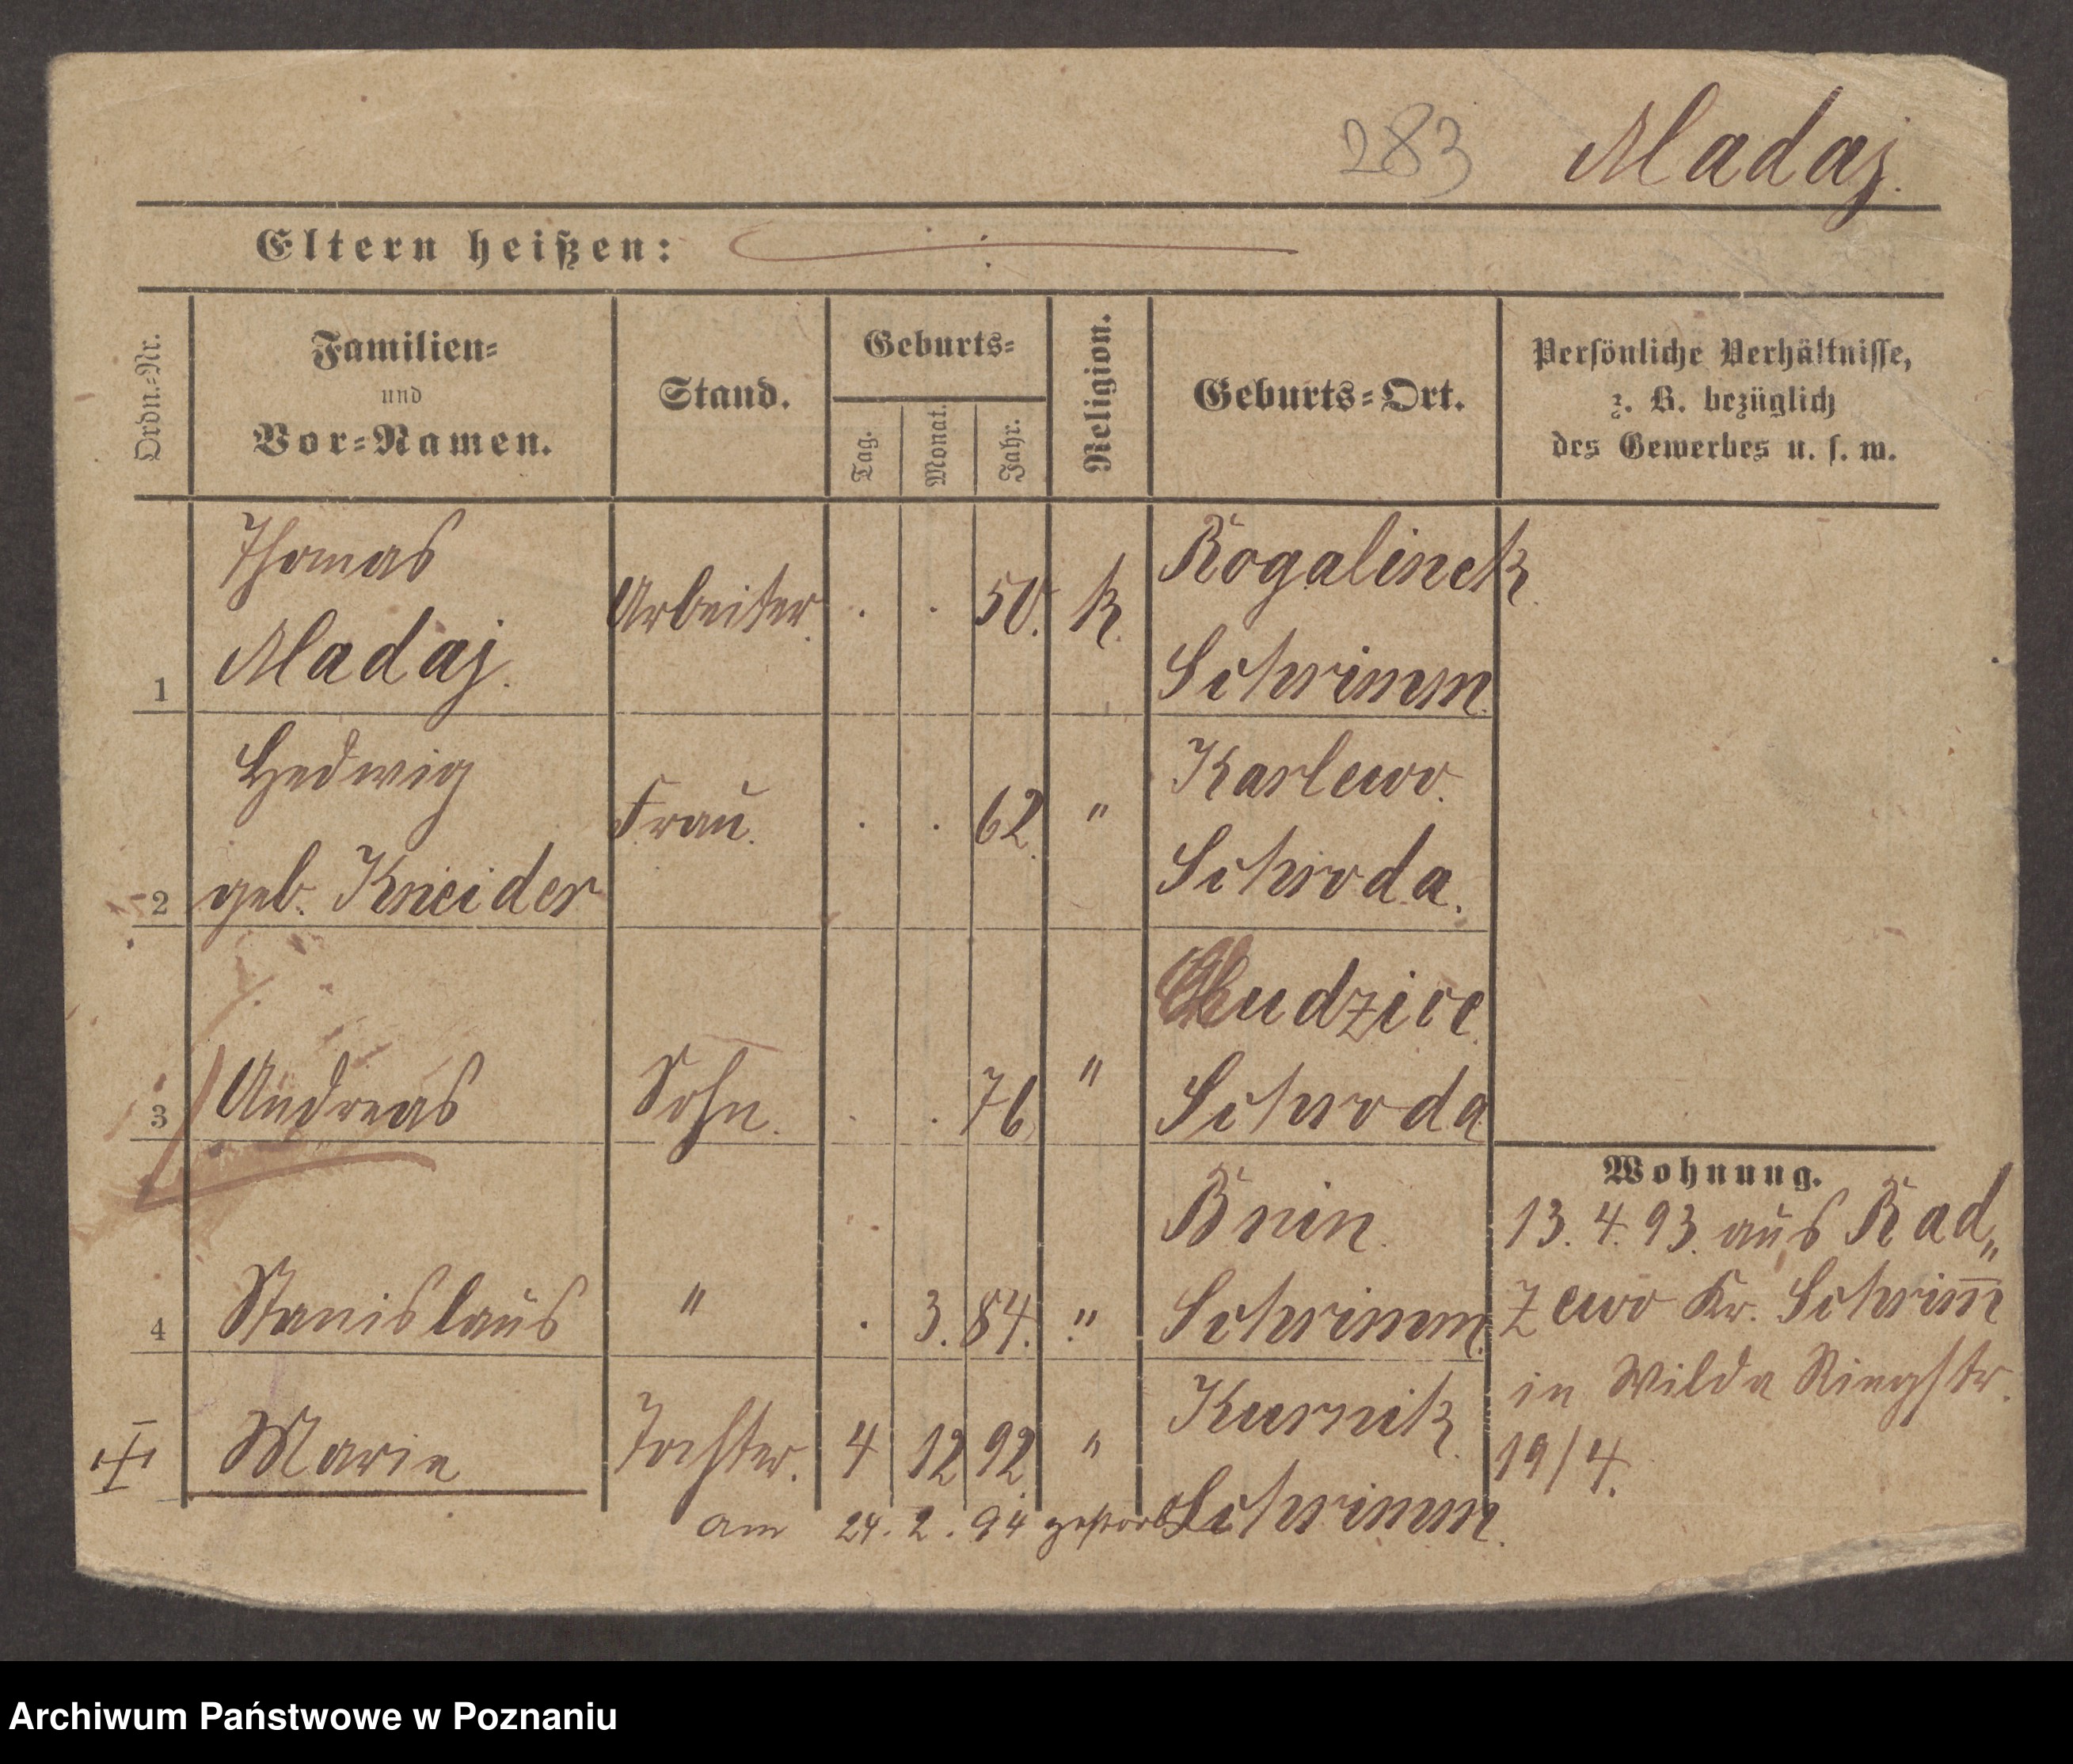 283 Madaj.
Eltern heißen:
Ordn.-Nr.
Familien-
und
Vor-Namen.
Stand.
Geburts-
Tag.
Monat.
Jahr.
Religion.
Geburts-Ort.
Persönliche Verhältnisse,
z. B. bezüglich
des Gewerbes u. s. w.
Thomas
Madaj.
1
Arbeiter.
50.
k.
Rogalinek
Schrimm.
Hedwig
geb. Kneider
2
Frau.
62.
"
Karlewo.
Schroda.
3
Andreas
Sohn.
76
"
Schroda
4
Stanislaus
"
3. 84.
"
Bnin.
Schrimm.
Marie
Tochter.
4 12 92
"
Kurnik.
Schrimm.
am 24. 2. 94 gestorb
Wohnung.
13. 4. 93. aus Rad„
zewo Kr. Schrim̄
in Wilda Ringstr.
19/4.
Archiwum Państwowe w Poznaniu